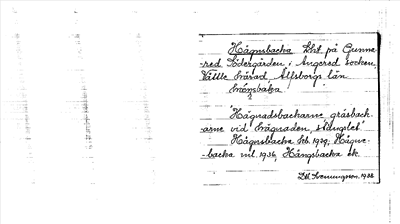 Hägnsbacka lht på Gunna-
red Södergården i Angered socken,
Vättle härad Älfsborgs län
"Hägnadsbackarne, gräsback-
arne vid hägnaden, stängslet"
Hägnsbacka Jeb. 1929, Hägne-
backa mtl. 1936, Hängsbacka ek.
1938